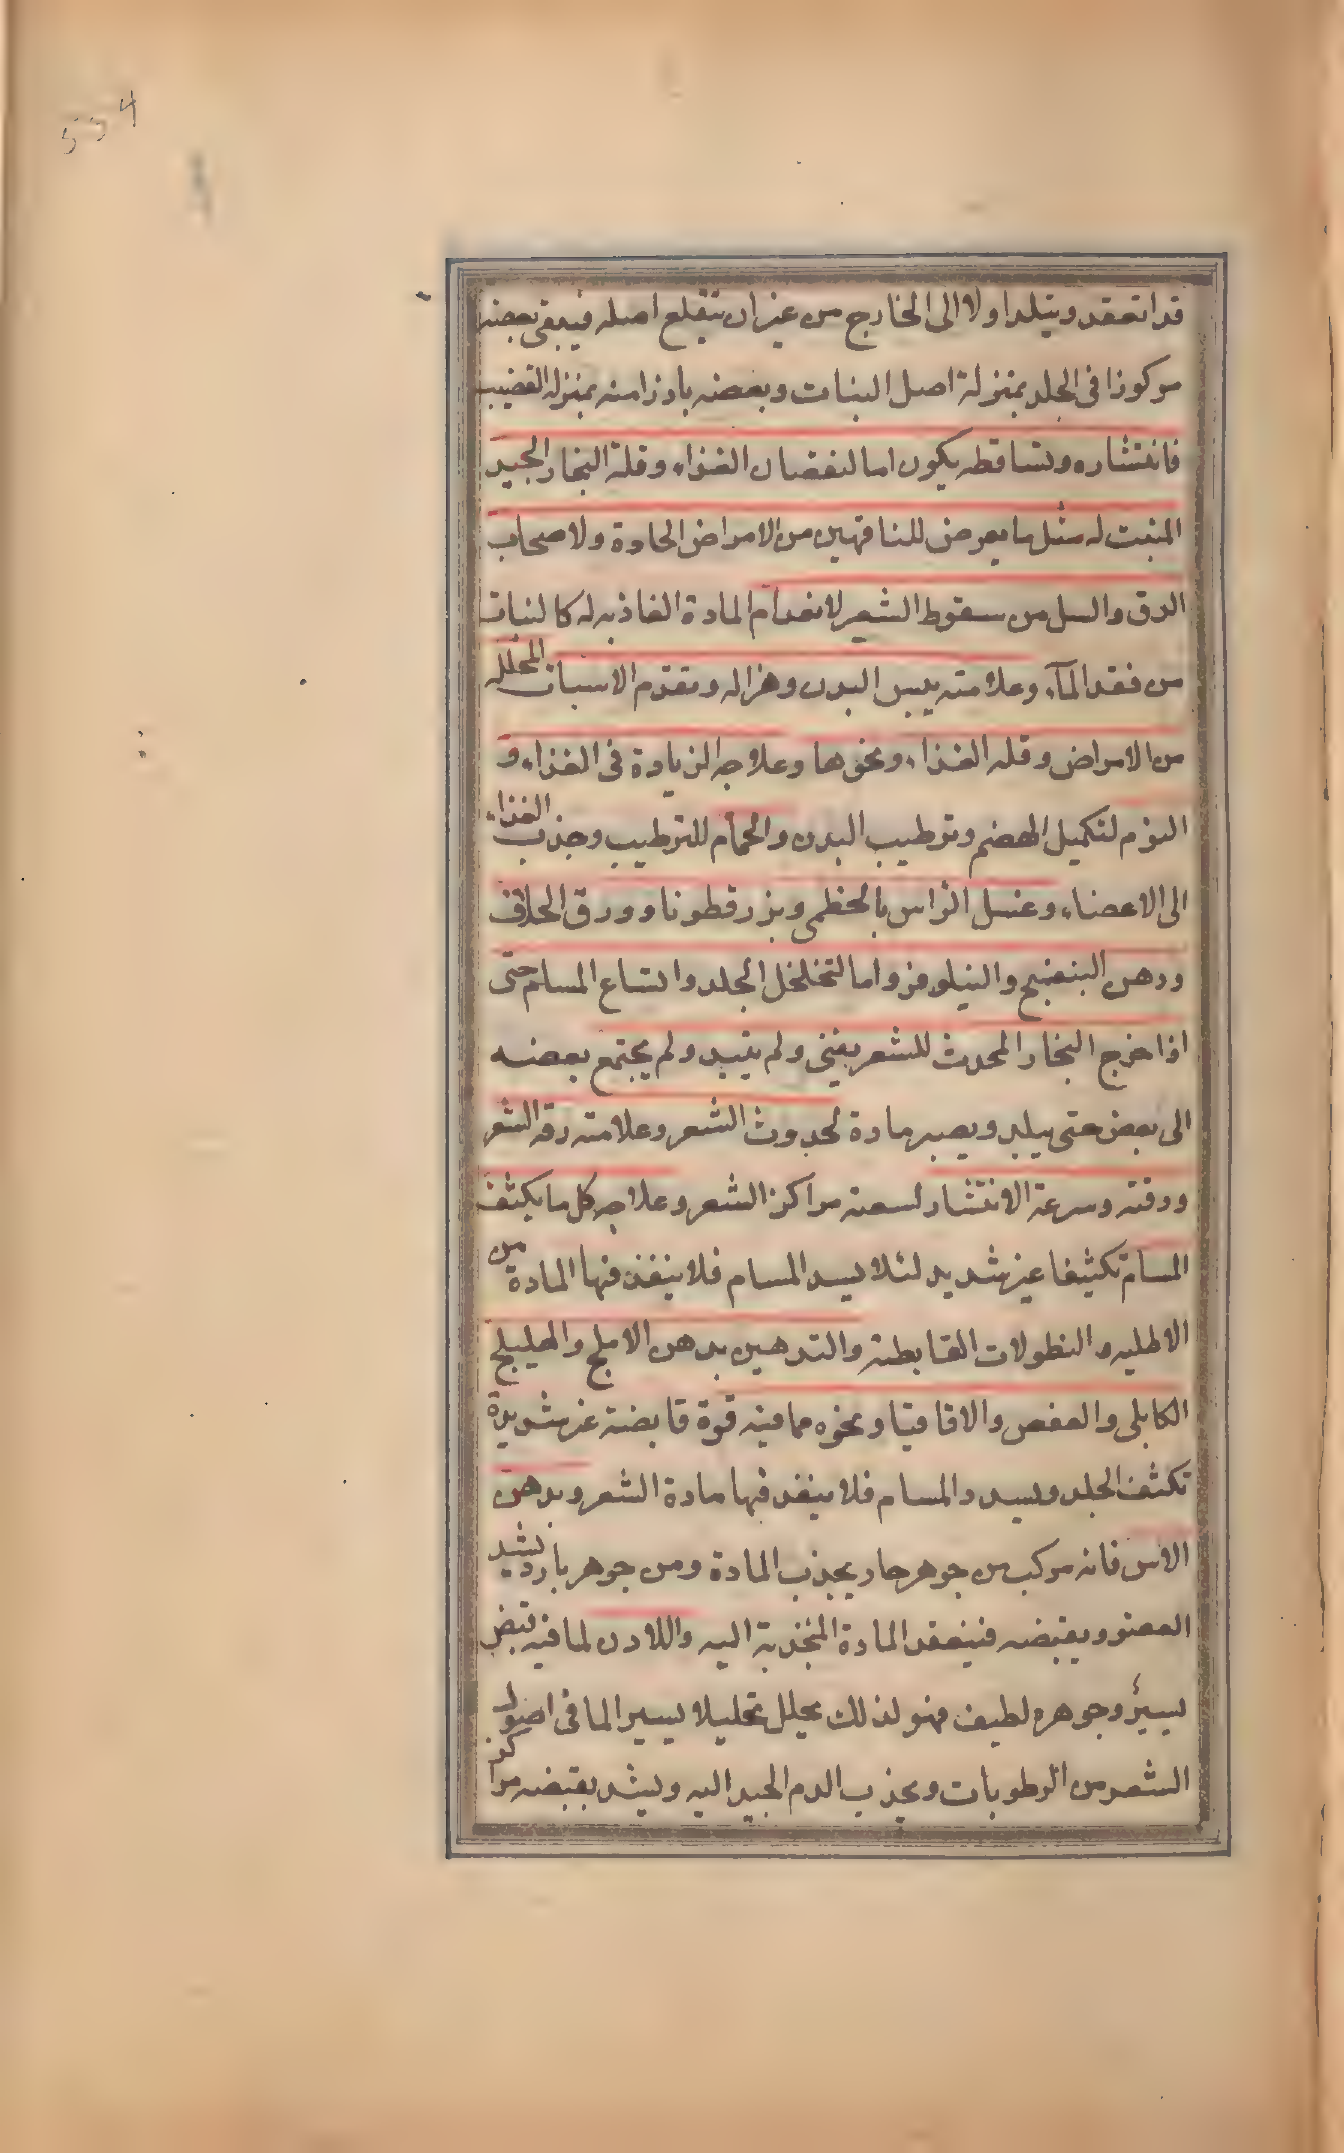 554
قد انعقد وتبلد اولا الى الخارج من غير ان ينقلع اصله فيبقى بعضه
مركوزا فى الجلد بمنزلة اصل النبات وبعضه بارزا منه بمنزله القضيب
فانتشاره وتساقطه يكون اما لنقصان الغذاء وقلة البخار الجيد
المنبت له مثل ما يعرض للناقهين من الامراض الحادة ولاصحاب
الدق والسل من سقوط الشعر لانعدام المادة الغاذيه له كالنبات
من فقد المآء وعلامته يبس البدن وهزاله وتقدم الاسباب المحلله
من الامراض وقله الغذاء ونحوها وعلاجه الزيادة فى الغذاء و
النوم لتكميل الهضم وترطيب البدن والحمام للترطيب وجذب الغذاء
الى الاعضاء وغسل الراس بالخطمى وبزر قطونا وورق الخلاف
ودهن البنفسج والنيلوفر واما لتخلخل الجلد واتساع المسام حتى
اذا خرج البخار المحدث للشعر يفنى ولم يتبد ولم يجتمع بعضه
الى بعض حتى يبلبد ويصير مادة لحدوث الشعر وعلامته رقه الشعر
ودقته وسرعة الانتشار لسعة مراكز الشعر وعلاجه كل ما يكثف
المسام تكثيفا غير شديد لئلا يسد المسام فلا ينفذ فيها المادة من
الاطليه والنطولات القابضة والتدهين بدهن الاملج والهليلج
الكابلى والعفص والاقاقيا ونحوه مما فيه قوة قابضة غير شديدة
تكثف الجلد ويسدد المسام فلا ينفد فيها مادة الشعر وبدهن
الاس فانه مركب من جوهر حار يجذب المادة ومن جوهر بارد يشد
العضو ويقبضه فينعقد المادة المنجذبة اليه واللادن لما فيه قبض
يسير وجوهره لطيف فهو لذلك يحلل تحليلا يسيرا لما فى اصول
الشعر من الرطوبات ويجذب الدم الجيد اليه ويشد بقبضه مراكز